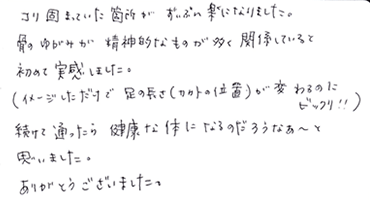 コリ固まっていた箇所が ずいぶん楽になりました。
骨のゆがみが 精神的なものが多く関係していると
初めて実感しました。
(イメージしただけで 足の長さ(カカトの位置)が変わるのに
ビックリ!!)
続けて通ったら 健康な体になるのだろうなぁ〜と
思いました。
ありがとうございました。